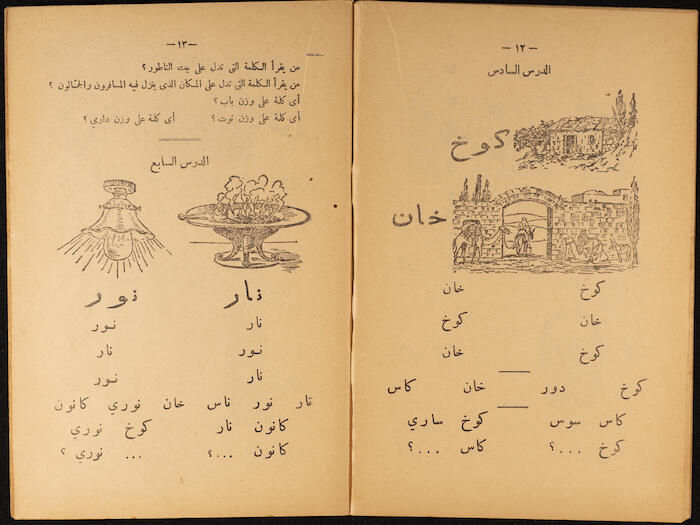 — ١٢ —
الدرس السادس
كوخ
خان
كوخ خان
خان كوخ
كوخ خان
كوخ دور خان كاس
كاس سوس كوخ ساري
كوخ ...؟ كاس ...؟
— ١٣ —
من يقرأ الكلمة التى تدل على بيت الناطور؟
من يقرأ الكلمة التى تدل على المكان الذى ينزل فيه المسافرون والجمّالون؟
أى كلة على وزن باب؟
أى كلة على وزن توت؟ أى كلة على وزن داري؟
الدرس السابع
نار نور
نار نور
نور نار
نار نور
نار نور ناس خان نوري كانون
كانون نار كوخ نوري
كانون ...؟ ... نوري؟